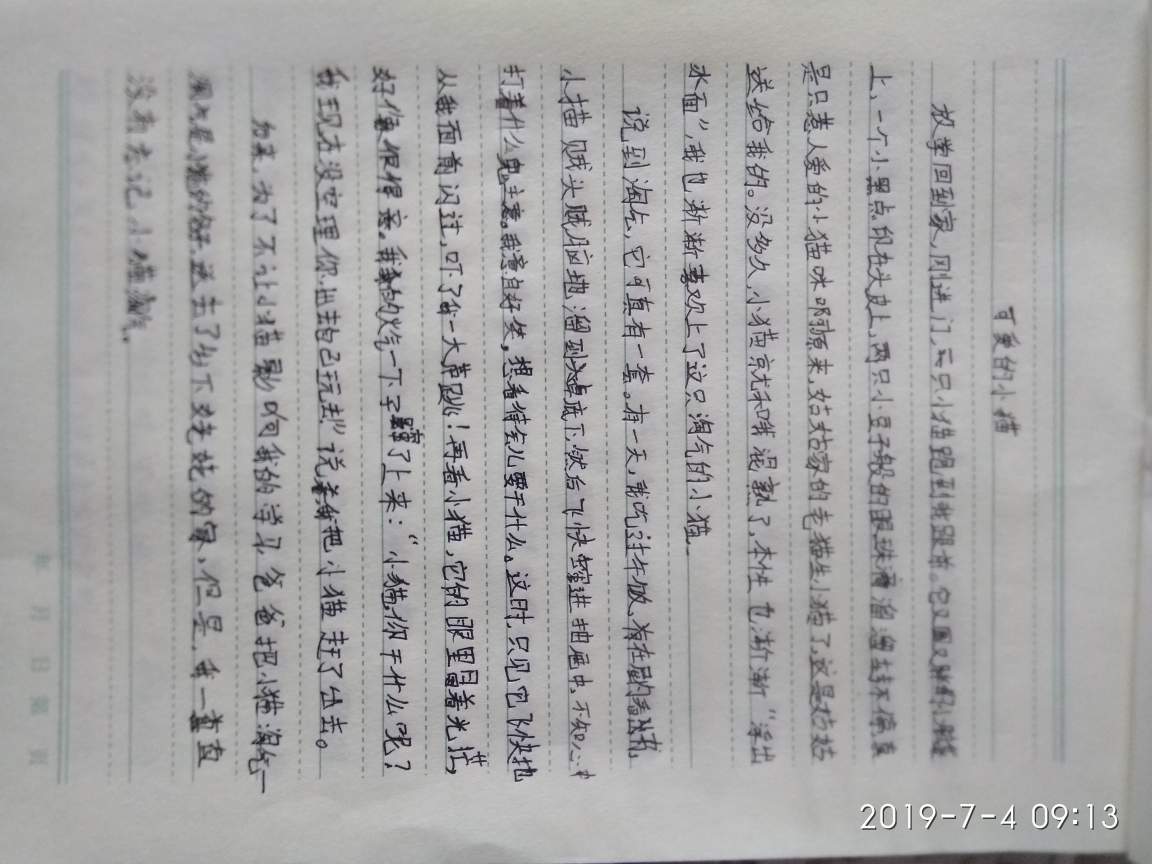 可爱的小猫
放学回到家,刚进门,一只小猫跑到我跟前。它又圆又
上,一个小黑点印在头皮上,两只小豆子般的眼珠溜溜转不停真
是只惹人爱的小猫咪啊!原来,姑姑家的老猫生小猫了,这是姑姑
送给我的。没多久,小猫就和我混熟了,本性也渐渐“浮出
水面”,我也渐渐喜欢上了这只淘气的小猫。
说到淘气,它可真有一套。有一天,我吃过午饭,育在屋内看书,
小猫贼头贼脑地溜到桌底下,然后飞快窜进抽屉中,不知心中
打着什么鬼主意。我觉点好笑,想看待会儿要干什么。这时,只见它飞快地
从我面前闪过,吓了我一大草跳!再看小猫,它的眼里冒着光茫,
好像很得意。我的火气一下子蹿了上来:“小猫,你干什么呢?
我现在没空理你,出去自己玩去!”说着我把小猫赶了出去。
为了不让小猫影响我的学习,爸爸把小猫淘气
送去了乡下姥姥的家,但是,我一直
没有忘记小猫
年 月 日 第 页
2019-7-4 09:13